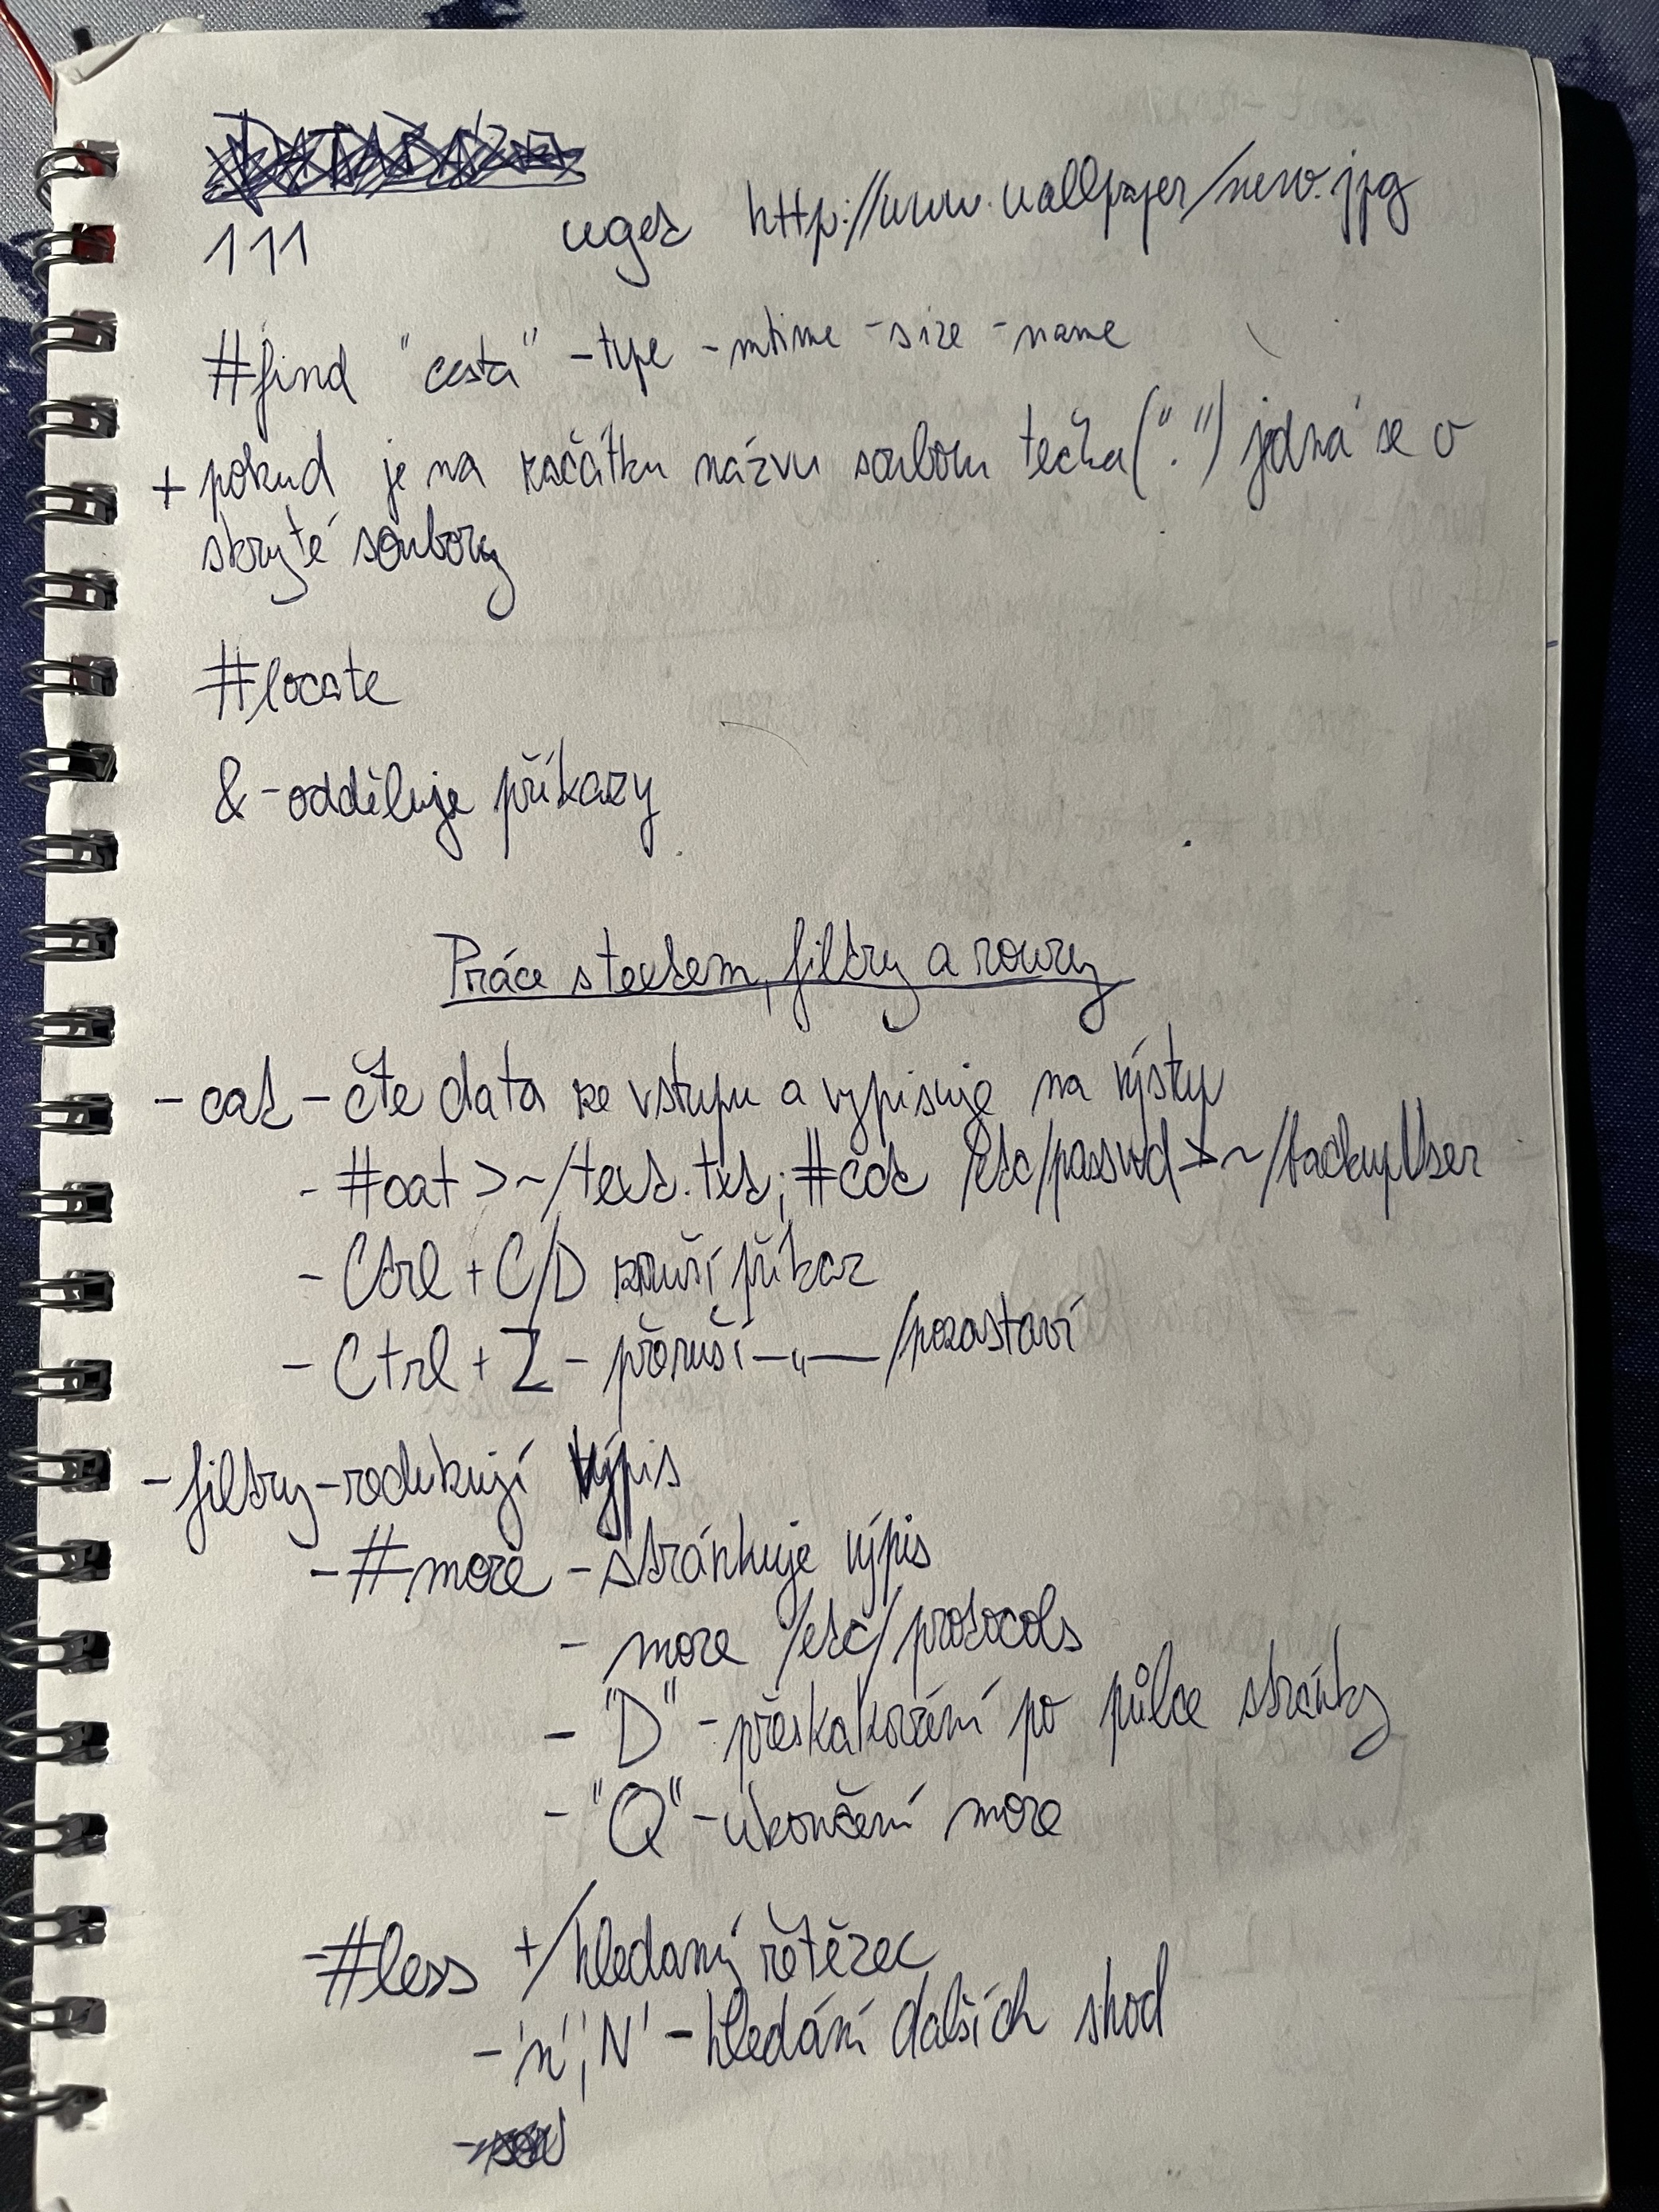 111 wget http://www.wallpaper/new.jpg
#find "cesta" -type -mtime -size -name
+ pokud je na začátku názvu souboru tečka (".") jedná se o
skryté soubory
#locate
& - odděluje příkazy
Práce s textem, filtry a roury
- cat - čte data ze vstupu a vypisuje na výstup
- #cat > ~/text.txt; #cat /etc/passwd > ~/backupUser
- Ctrl + C/D zruší příkaz
- Ctrl + Z - přeruší -„- /pozastaví
- filtry - redukují výpis
- #more - stránkuje výpis
- more /etc/protocols
- "D" - přeskakování po půlce stránky
- "Q" - ukončení more
- #less +/hledaný řetězec
- 'n', 'N' - hledání dalších shod